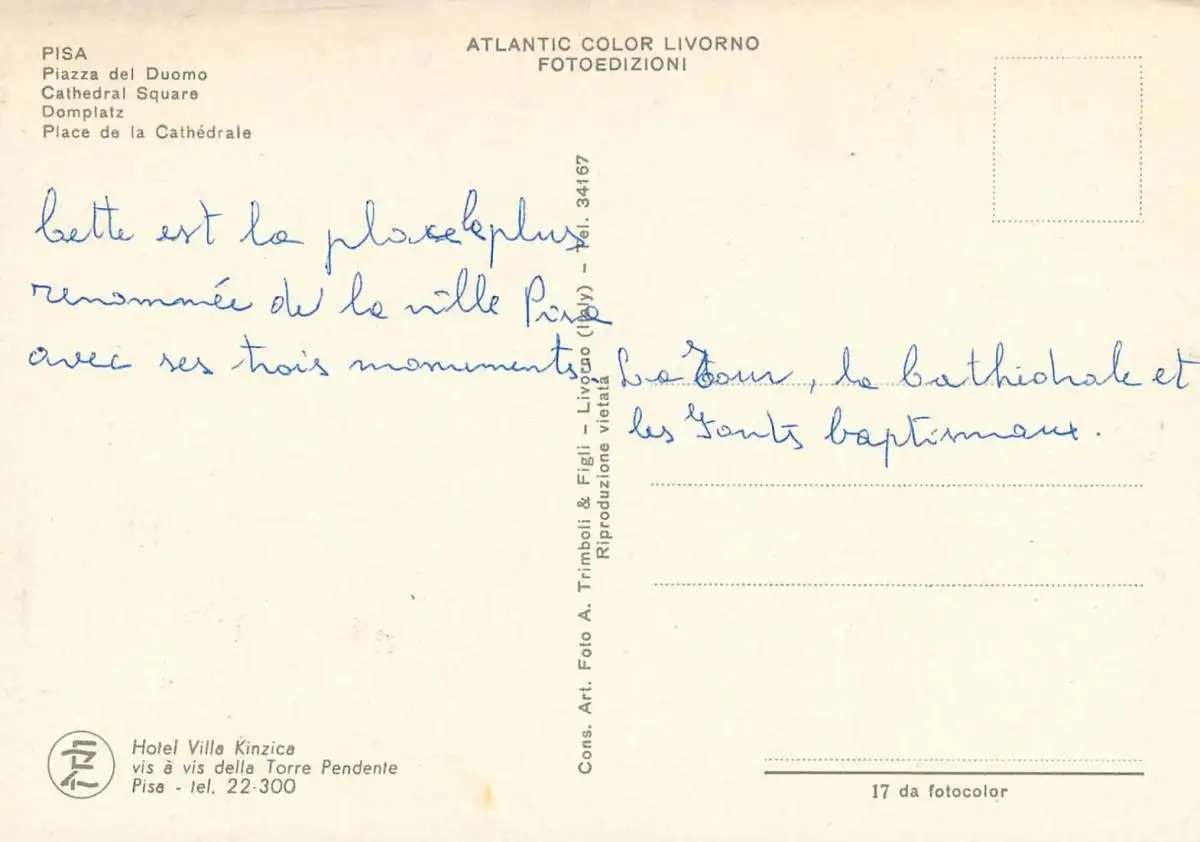 PISA
Piazza del Duomo
Cathedral Square
Domplatz
Place de la Cathédrale
ATLANTIC COLOR LIVORNO
FOTOEDIZIONI
Cette est la place la plus
renommée de la ville Pisa
avec ses trois monuments, La Tour, la Cathédrale et
les Fonts baptismaux.
Cons. Art. Foto A. Trimboli & Figli – Livorno (Italy) – Tel. 34167
Riproduzione vietata
Hotel Villa Kinzica
vis à vis della Torre Pendente
Pisa - tel. 22-300
17 da fotocolor